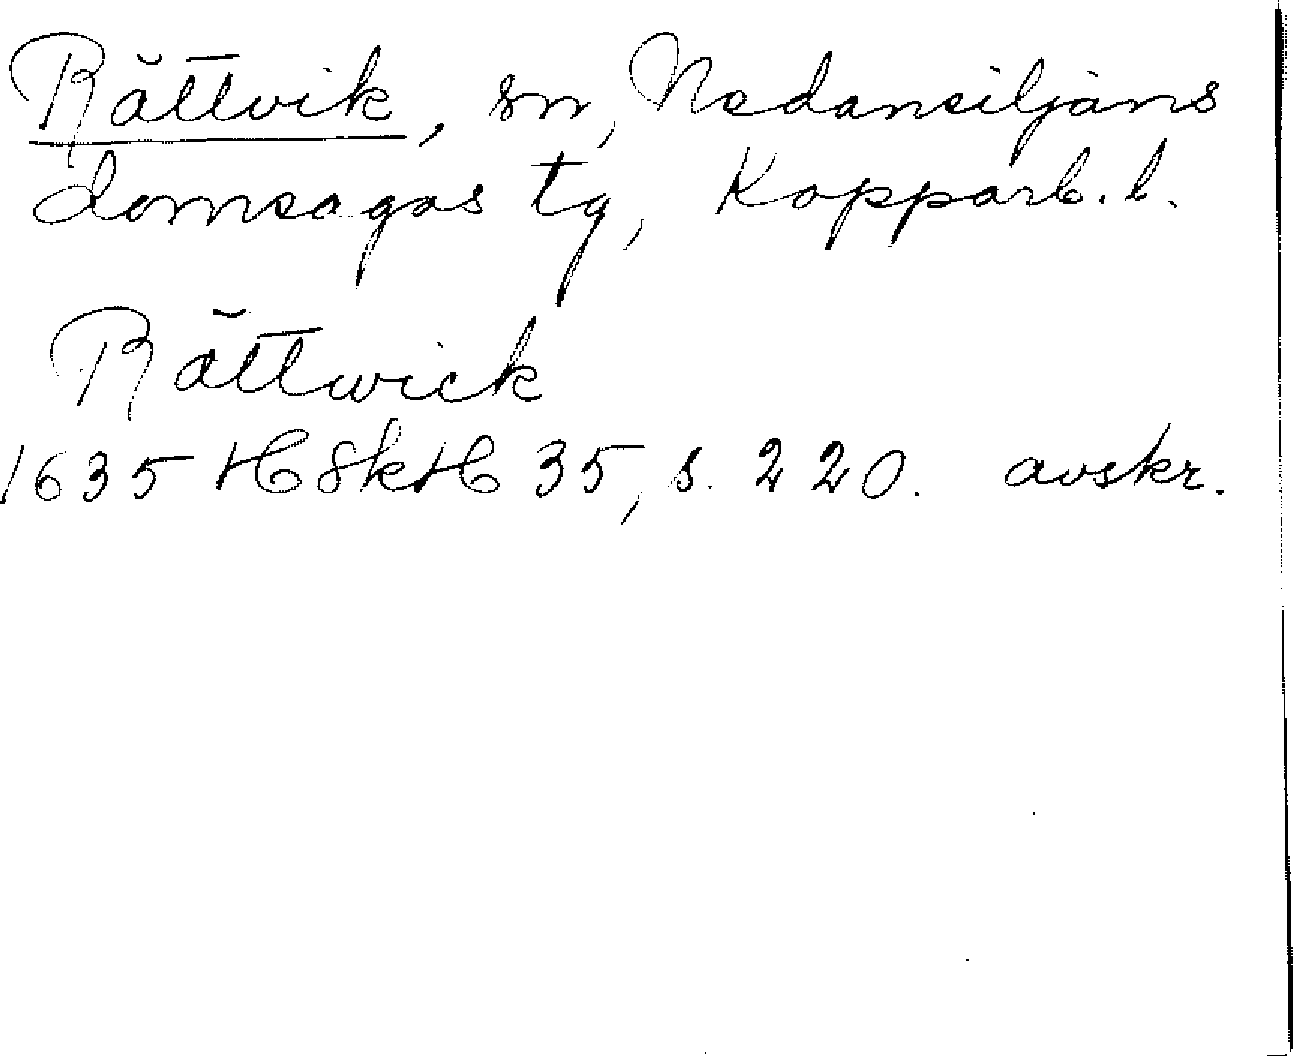 Rättvik, sn, Nedansiljans
domsagas tg, Kopparb. l.
Rättwick
1635 HSkH 35, s. 220. avskr.